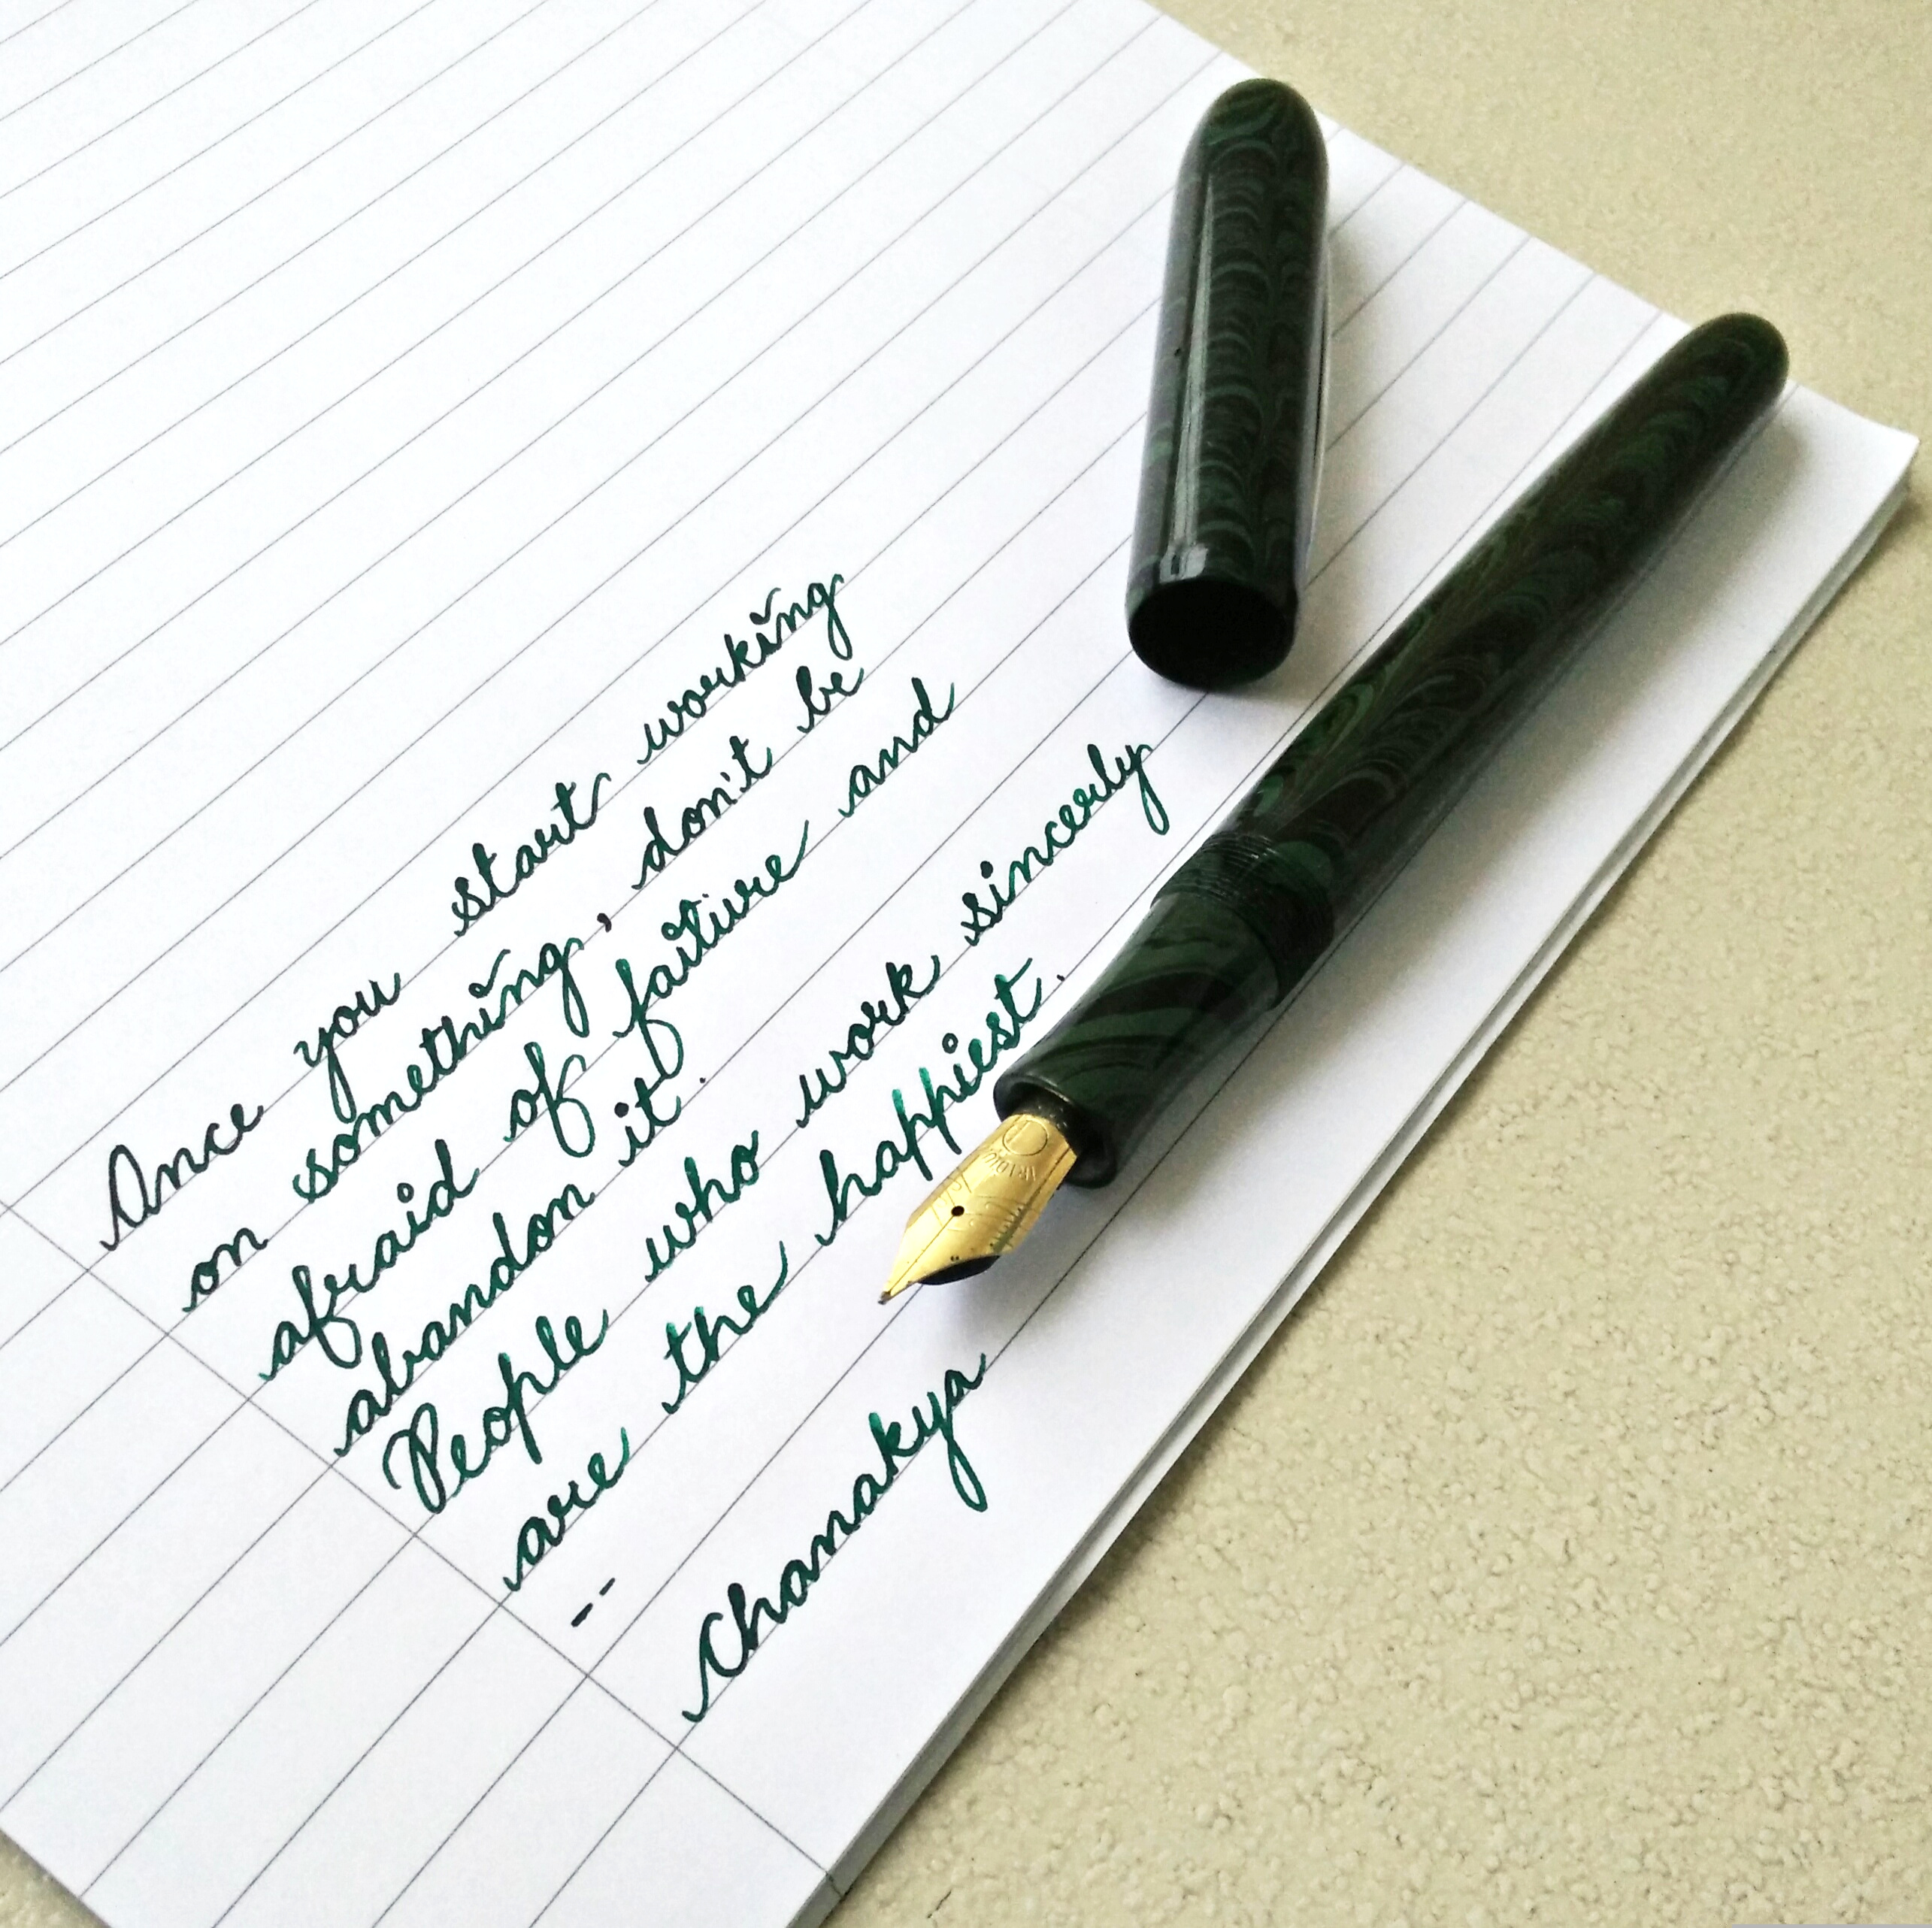 Once you start working
on something, don't be
afraid of failure and
abandon it.
People who work sincerly
are the happiest.
--
Chanakya